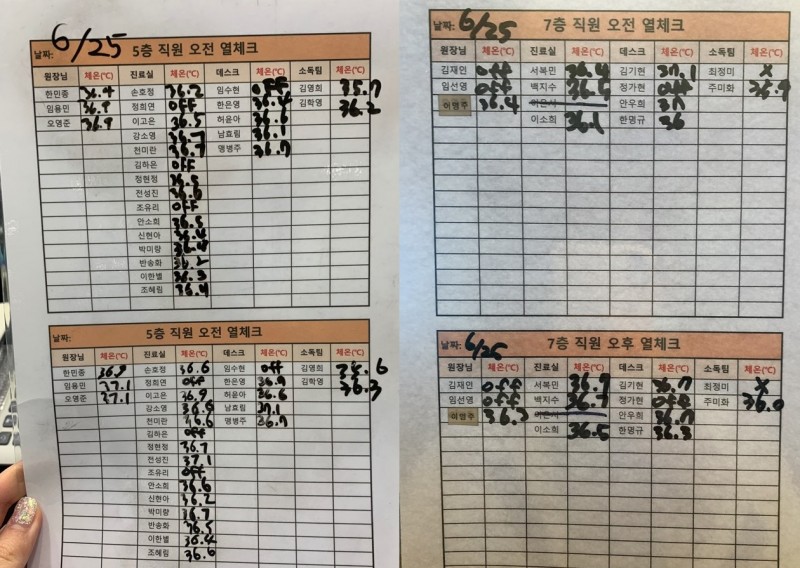 날짜: 6/25 5층 직원 오전 열체크
원장님 체온(℃) 진료실 체온(℃) 데스크 체온(℃) 소독팀 체온(℃)
한민종 36.4 손호정 36.2 임수현 off 김영희 35.7
임용민 36.9 정희연 off 한은영 36.4 김학영 36.2
오영준 36.9 이고은 36.5 허윤아 36.6
강소영 36.7 남효림 36.1
천미란 36.7 맹병주 36.7
김하은 off
정현정 36.5
전성진 36.6
조유리 off
안소희 36.5
신현아 36.4
박미량 36.4
반송화 36.2
이한별 36.3
조혜림 36.4
날짜: 5층 직원 오전 열체크
원장님 체온(℃) 진료실 체온(℃) 데스크 체온(℃) 소독팀 체온(℃)
한민종 36.9 손호정 36.6 임수현 off 김영희 36.6
임용민 37.1 정희연 off 한은영 36.9 김학영 36.3
오영준 37.1 이고은 36.9 허윤아 36.6
강소영 36.9 남효림 37.1
천미란 36.6 맹병주 36.7
김하은 off
정현정 36.7
전성진 37.1
조유리 off
안소희 36.6
신현아 36.2
박미량 36.7
반송화 36.5
이한별 36.4
조혜림 36.6
날짜: 6/25 7층 직원 오전 열체크
원장님 체온(℃) 진료실 체온(℃) 데스크 체온(℃) 소독팀 체온(℃)
김재인 off 서복민 36.4 김기현 37.1 최정미 x
임선영 off 백지수 36.5 정가현 off 주미화 36.9
이명주 36.4 이은서 안우희 37
이소희 36.1 한명규 36
날짜: 6/25 7층 직원 오후 열체크
원장님 체온(℃) 진료실 체온(℃) 데스크 체온(℃) 소독팀 체온(℃)
김재인 off 서복민 36.9 김기현 36.7 최정미 x
임선영 off 백지수 36.7 정가현 off 주미화 36.0
이명주 36.3 이은서 안우희 36.7
이소희 36.5 한명규 36.3